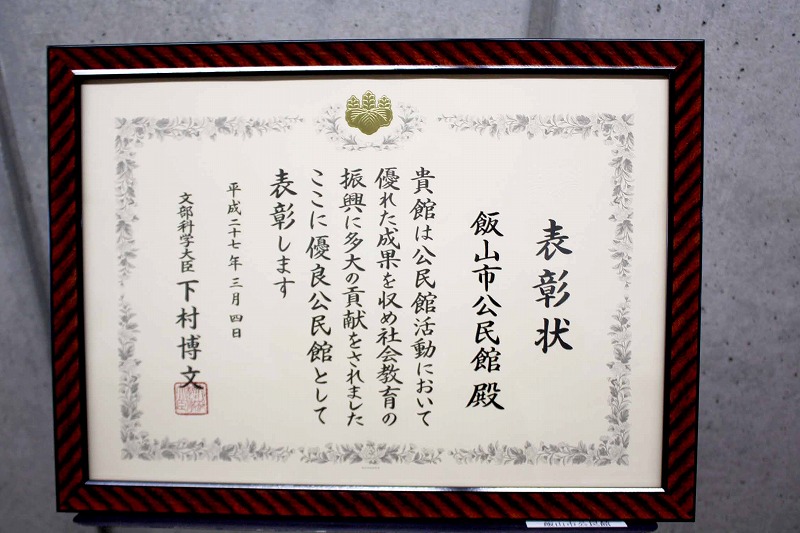 表彰状
飯山市公民館 殿
貴館は公民館活動において
優れた成果を収め社会教育の
振興に多大の貢献をされました
ここに優良公民館として
表彰します
平成二十七年三月四日
文部科学大臣 下村博文